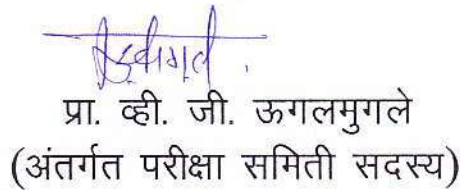 प्रा. व्ही. जी. ऊगलमुगले
(अंतर्गत परीक्षा समिती सदस्य)